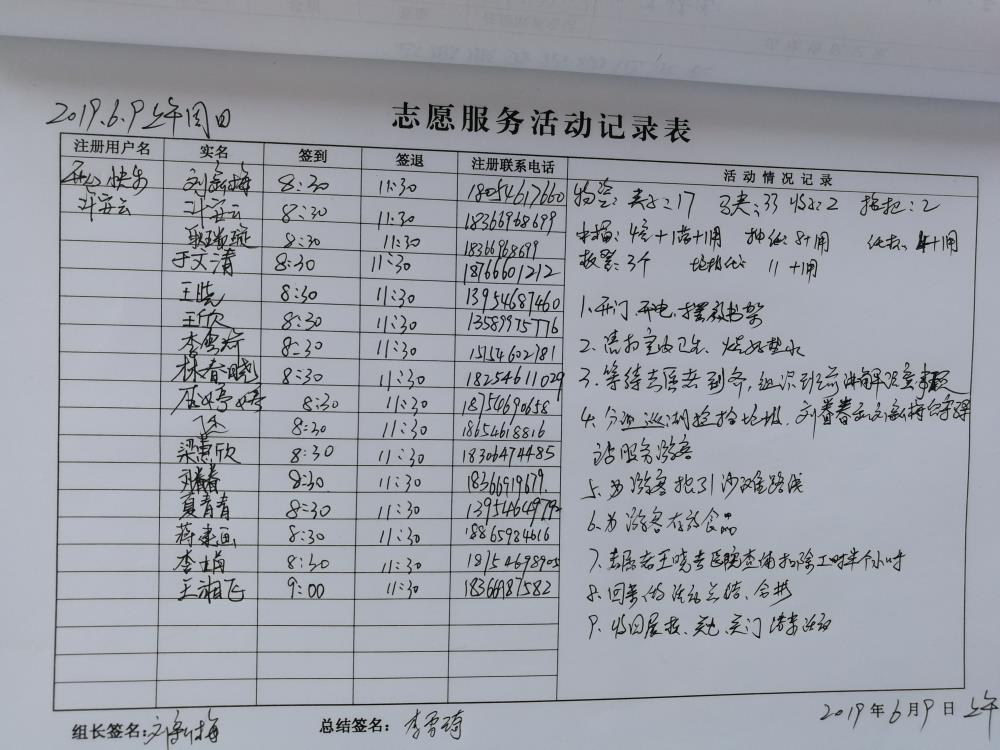 2019.6.9上午周日
志愿服务活动记录表
注册用户名 实名 签到 签退 注册联系电话 活动情况记录
开心快乐 刘新梅 8:30 11:30 18054617660
斗安云 斗安云 8:30 11:30 18366968699
8:30 11:30 18366968699
于文清 8:30 11:30 18766601212
王晓 8:30 11:30 13954687460
王欣 8:30 11:30 13589975776
李雪琦 8:30 11:30 15154602781
林春晓 8:30 11:30 18254611029
8:30 11:30 18754690658
飞达 8:30 11:30 18654618816
梁慧欣 8:30 11:30 18306474485
刘春春 8:30 11:30 18366919679
夏青青 8:30 11:30 1395464979
蒋建画 8:30 11:30 18865984616
李苗 8:30 11:30 18754698905
王湘飞 9:00 11:30 18366987582
物资:夹子:17 马夹:33 2 拖把:2
扫描:4 +1 +1用 抽纸:8+用 4+1用
3个 垃圾袋 11+1用
1.开门开电,摆放书架
2.清扫室内卫生、烧好热水
3.等待志愿者到齐,组织
4.分 巡湖捡拾垃圾,刘春春和刘新梅
站服务游客
5.为游客指引 路线
6.为游客存放食品
7.志愿者王晓去医院查体扣除工时半个小时
8.回来做活动总结、合影
9.收回展板、关电、关门结束活动
组长签名:刘新梅 总结签名:李雪琦 2019年6月9日上午